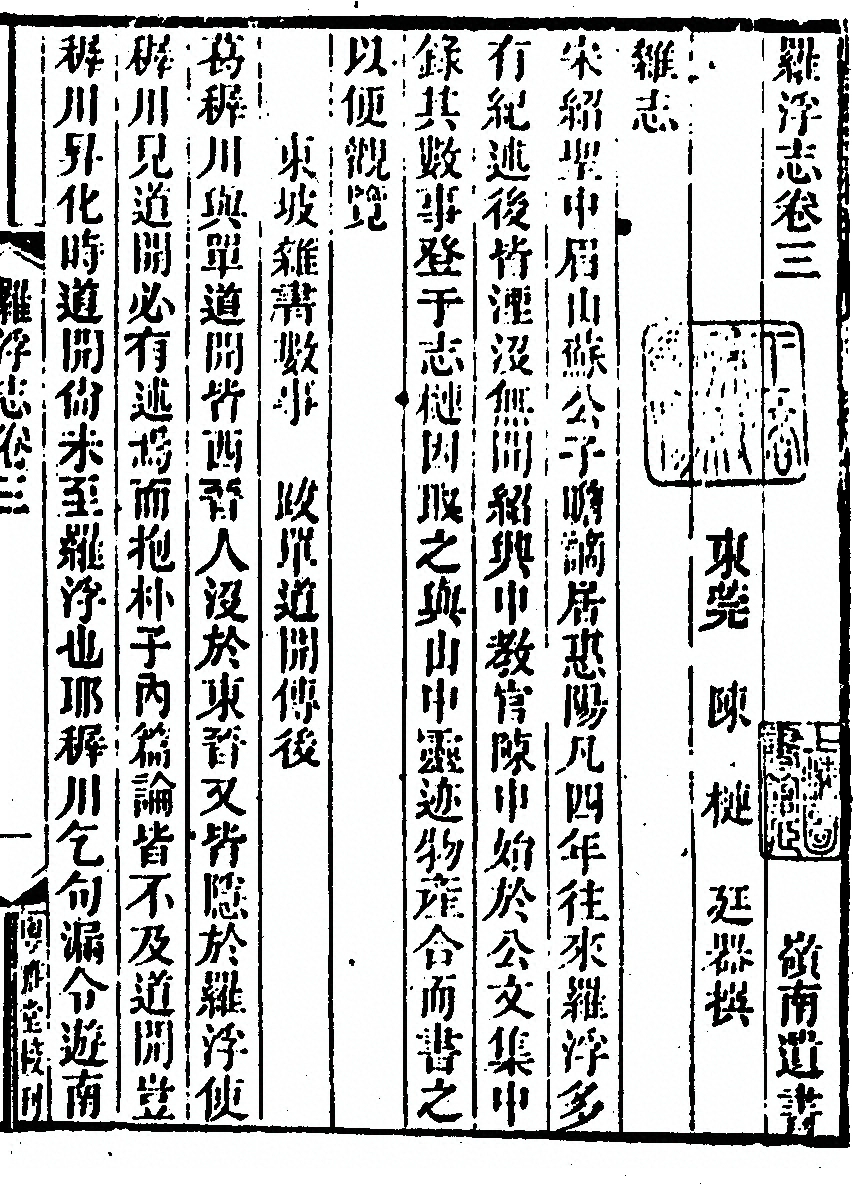 羅浮志卷三 嶺南遺書
東莞 陳 槤 廷器撰
雜志
宋紹聖中眉山蘇公子瞻謫居惠陽凡四年往來羅浮多
有紀述後皆湮沒無聞紹興中教官陳申始於公文集中
錄其數事登于志槤因取之與山中靈迹物產合而書之
以便觀覽
東坡雜書數事 跋單道開傳後
葛稚川與單道開皆西晉人沒於東晉又皆隱於羅浮使
稚川見道開必有述焉而抱朴子內篇論皆不及道開豈
稚川昇化時道開尚未至羅浮也耶稚川乞句漏令遊南
羅浮志卷三
粵雅堂校刊